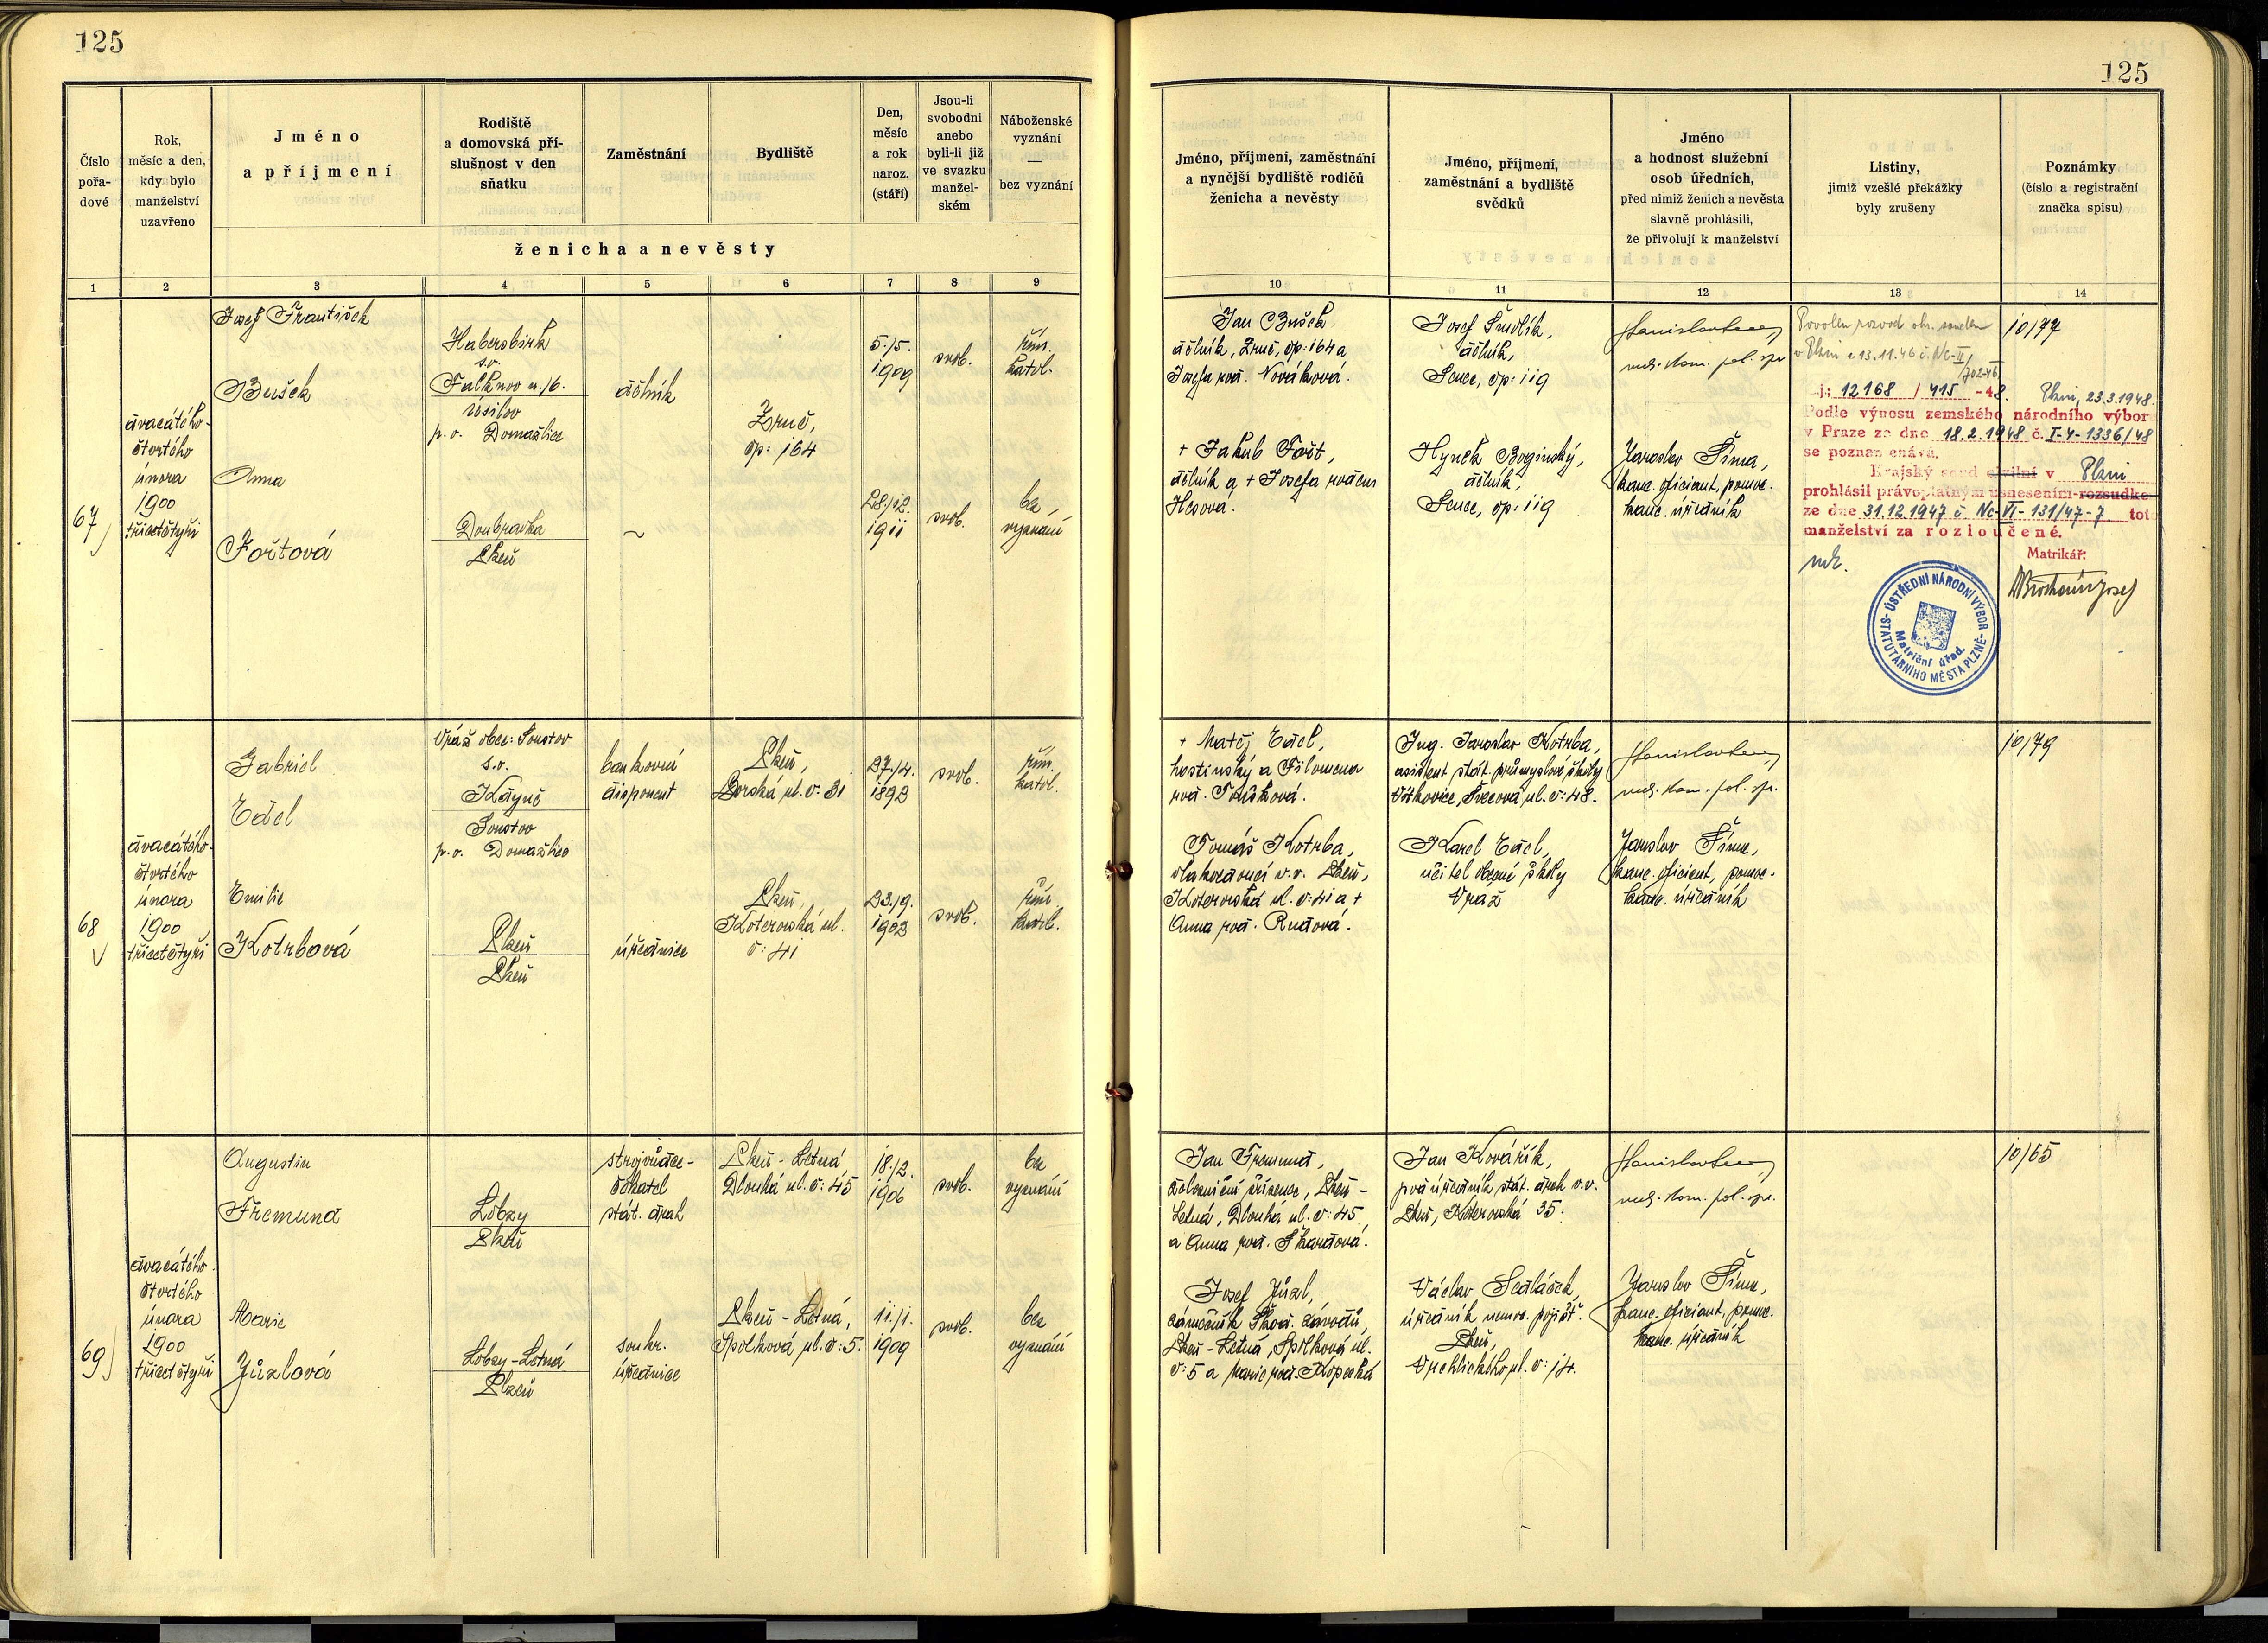 125
125
Číslo
pořa-
dové
Rok,
měsíc a den,
kdy bylo
manželství
uzavřeno
Jméno
a příjmení
Rodiště
a domovská pří-
slušnost v den
sňatku
Zaměstnání
Bydliště
Den,
měsíc
a rok
naroz.
(stáří)
Jsou-li
svobodni
anebo
byli-li již
ve svazku
manžel-
ském
Náboženské
vyznání
—
bez vyznání
ženicha a nevěsty
Jméno, příjmení, zaměstnání
a nynější bydliště rodičů
ženicha a nevěsty
Jméno, příjmení,
zaměstnání a bydliště
svědků
Jméno
a hodnost služební
osob úředních,
před nimiž ženich a nevěsta
slavně prohlásili,
že přivolují k manželství
Listiny,
jimiž vzešlé překážky
byly zrušeny
Poznámky
(číslo a registrační
značka spisu)
1 2 3 4 5 6 7 8 9 10 11 12 13 14
67
dvacátého
čtvrtého
února
1900
třicetčtyři
Josef František
Bušek
Habersbirk
s.o.
Falknov n./O.
p.o. Domažlice
dělník
Zruč,
čp: 164
5./5.
1909
svob.
řím.
katol.
Anna
Fořtová
Doubravka
Plzeň
~
28./12.
1911
svob.
bez
vyznání
Jan Bušek
dělník, Zruč, čp: 164 a
Josefa roz. Nováková.
+ Jakub Fořt,
dělník a + Josefa rozená
Hesová.
Josef Šmolík,
dělník,
Senec, čp: 119
Hynek Boginský,
dělník,
Senec, čp: 119
rad. kom. pol. spr.
Jaroslav Šíma,
kanc. oficiant, pomoc.
kanc. úředník
Povolen rozvod okr. soudem
v Plzni z 13.11.46 č. Nc-II/
702-46
10/77
j: 12168 / 415 -48. Plzni, 23.3.1948.
Podle výnosu zemského národního výbor
v Praze ze dne 18.2.1948 č. I-4-1336/48
se poznamenává.
Krajský soud civilní v Plzni
prohlásil právoplatným usnesením-rozsudke
ze dne 31.12.1947 č. Nc-VI-131/47-7. tot
manželství za rozloučené.
Matrikář:
ÚSTŘEDNÍ NÁRODNÍ VÝBOR
STATUTÁRNÍHO MĚSTA PLZNĚ
Matriční úřad.
68
dvacátého
čtvrtého
února
1900
třicetčtyři
Gabriel
Edel
Úpuž obec: Soustov
s.o.
Kdyně
Soustov
p.o. Domažlice
bankovní
disponent
Plzeň,
Borská ul. č: 31
27./4.
1892
svob.
řím.
katol.
Emilie
Kotrbová
Plzeň
Plzeň
úřednice
Plzeň,
Koterovská ul.
č: 41
23./9.
1903
svob.
řím.
katol.
+ Matěj Edel,
hostinský a Filomena
roz. Toušková.
Tomáš Kotrba,
vlakvedoucí v.v. Plzeň,
Koterovská ul. č: 41 a +
Anna roz. Rudová.
Ing. Jaroslav Kotrba,
assistent stát. průmyslové školy
Vítkovice, Švecová ul. č: 48.
Karel Edel,
učitel školy
Úpaž
rad. kom. pol. spr.
Jaroslav Šíma,
kanc. oficient, pomoc.
kanc. úředník
10/79
69
dvacátého
čtvrtého
února
1900
třicetčtyři
Augustin
Fremund
Lobzy
Plzeň
strojvůdce-
čekatel
stát. drah
Plzeň - Letná
Dlouhá ul. č: 45
18./2.
1906
svob.
bez
vyznání
Marie
Jůzlová
Lobzy-Letná
Plzeň
soukr.
úřednice
Plzeň - Letná,
Spolková ul. č: 5.
11./1.
1909
svob.
bez
vyznání
Jan Fremund,
železniční zřízenec, Plzeň -
Letná, Dlouhá ul. č: 45,
a Anna roz. Škardová.
Josef Jůzl,
zámečník Škod. závodů,
Plzeň - Letná, Spolková ul.
č: 5 a Marie roz. Kopecká
Jan Kovářík,
úředník stát. drah v.v.
Plzeň, Koterovská 35.
Václav Sedláček,
úředník nemoc. pojišť.
Plzeň,
Vrchlického ul. č: 14.
rad. kom. pol. spr.
Jaroslav Šíma,
kanc. oficiant, pomoc.
kanc. úředník
10/65